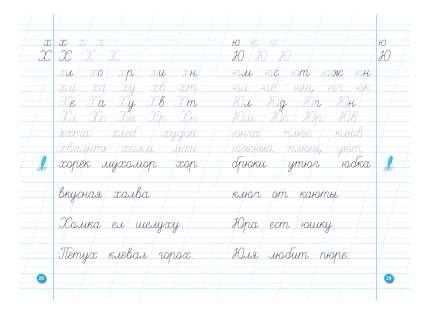 х х х х
Х Х Х Х
хл хо хр хи хн
хм ха ху хв хт
Хе Ха Ху Хв Хт
Хл Хо Хи Хр Хн
яхта хлеб худой
хвалить холм мхи
хорёк мухомор хор
вкусная халва
Хомка ел шелуху.
Петух клевал горох.
28
ю ю ю ю
Ю Ю Ю Ю
юм юс ют юж юн
юл юв ющ юг юк
Юл Юд Юг Юн
Юм Юс Юр Юв
юнга плюс клюв
южный плющ уют
брюки утюг юбка
ключ от каюты
Юра ест юшку.
Юля любит пюре.
ю
Ю
29